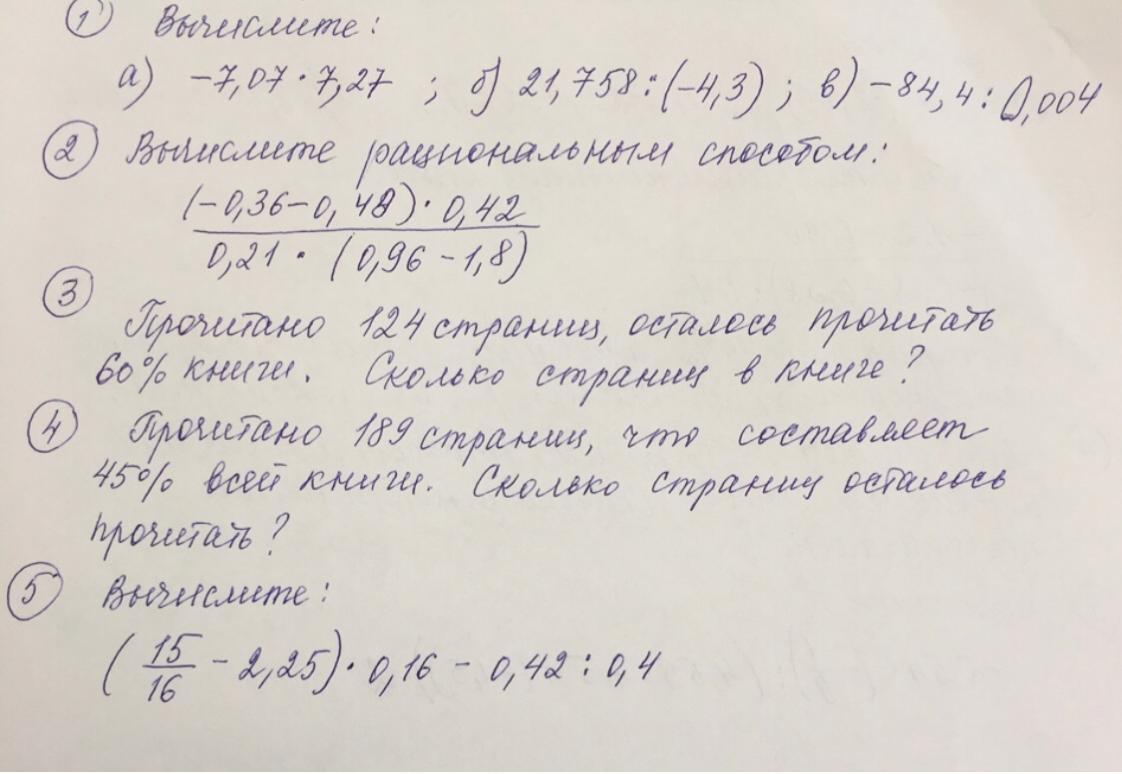 ① Вычислите:
а) -7,07·7,27 ; б) 21,758:(-4,3) ; в) -84,4:0,004
② Вычислите рациональным способом:
(-0,36-0,48)·0,42
0,21·(0,96-1,8)
③
Прочитано 124 страниц, осталось прочитать
60% книги. Сколько страниц в книге?
④ Прочитано 189 страниц, что составляет
45% всей книги. Сколько страниц осталось
прочитать?
⑤ Вычислите:
(15/16 - 2,25)·0,16 - 0,42:0,4